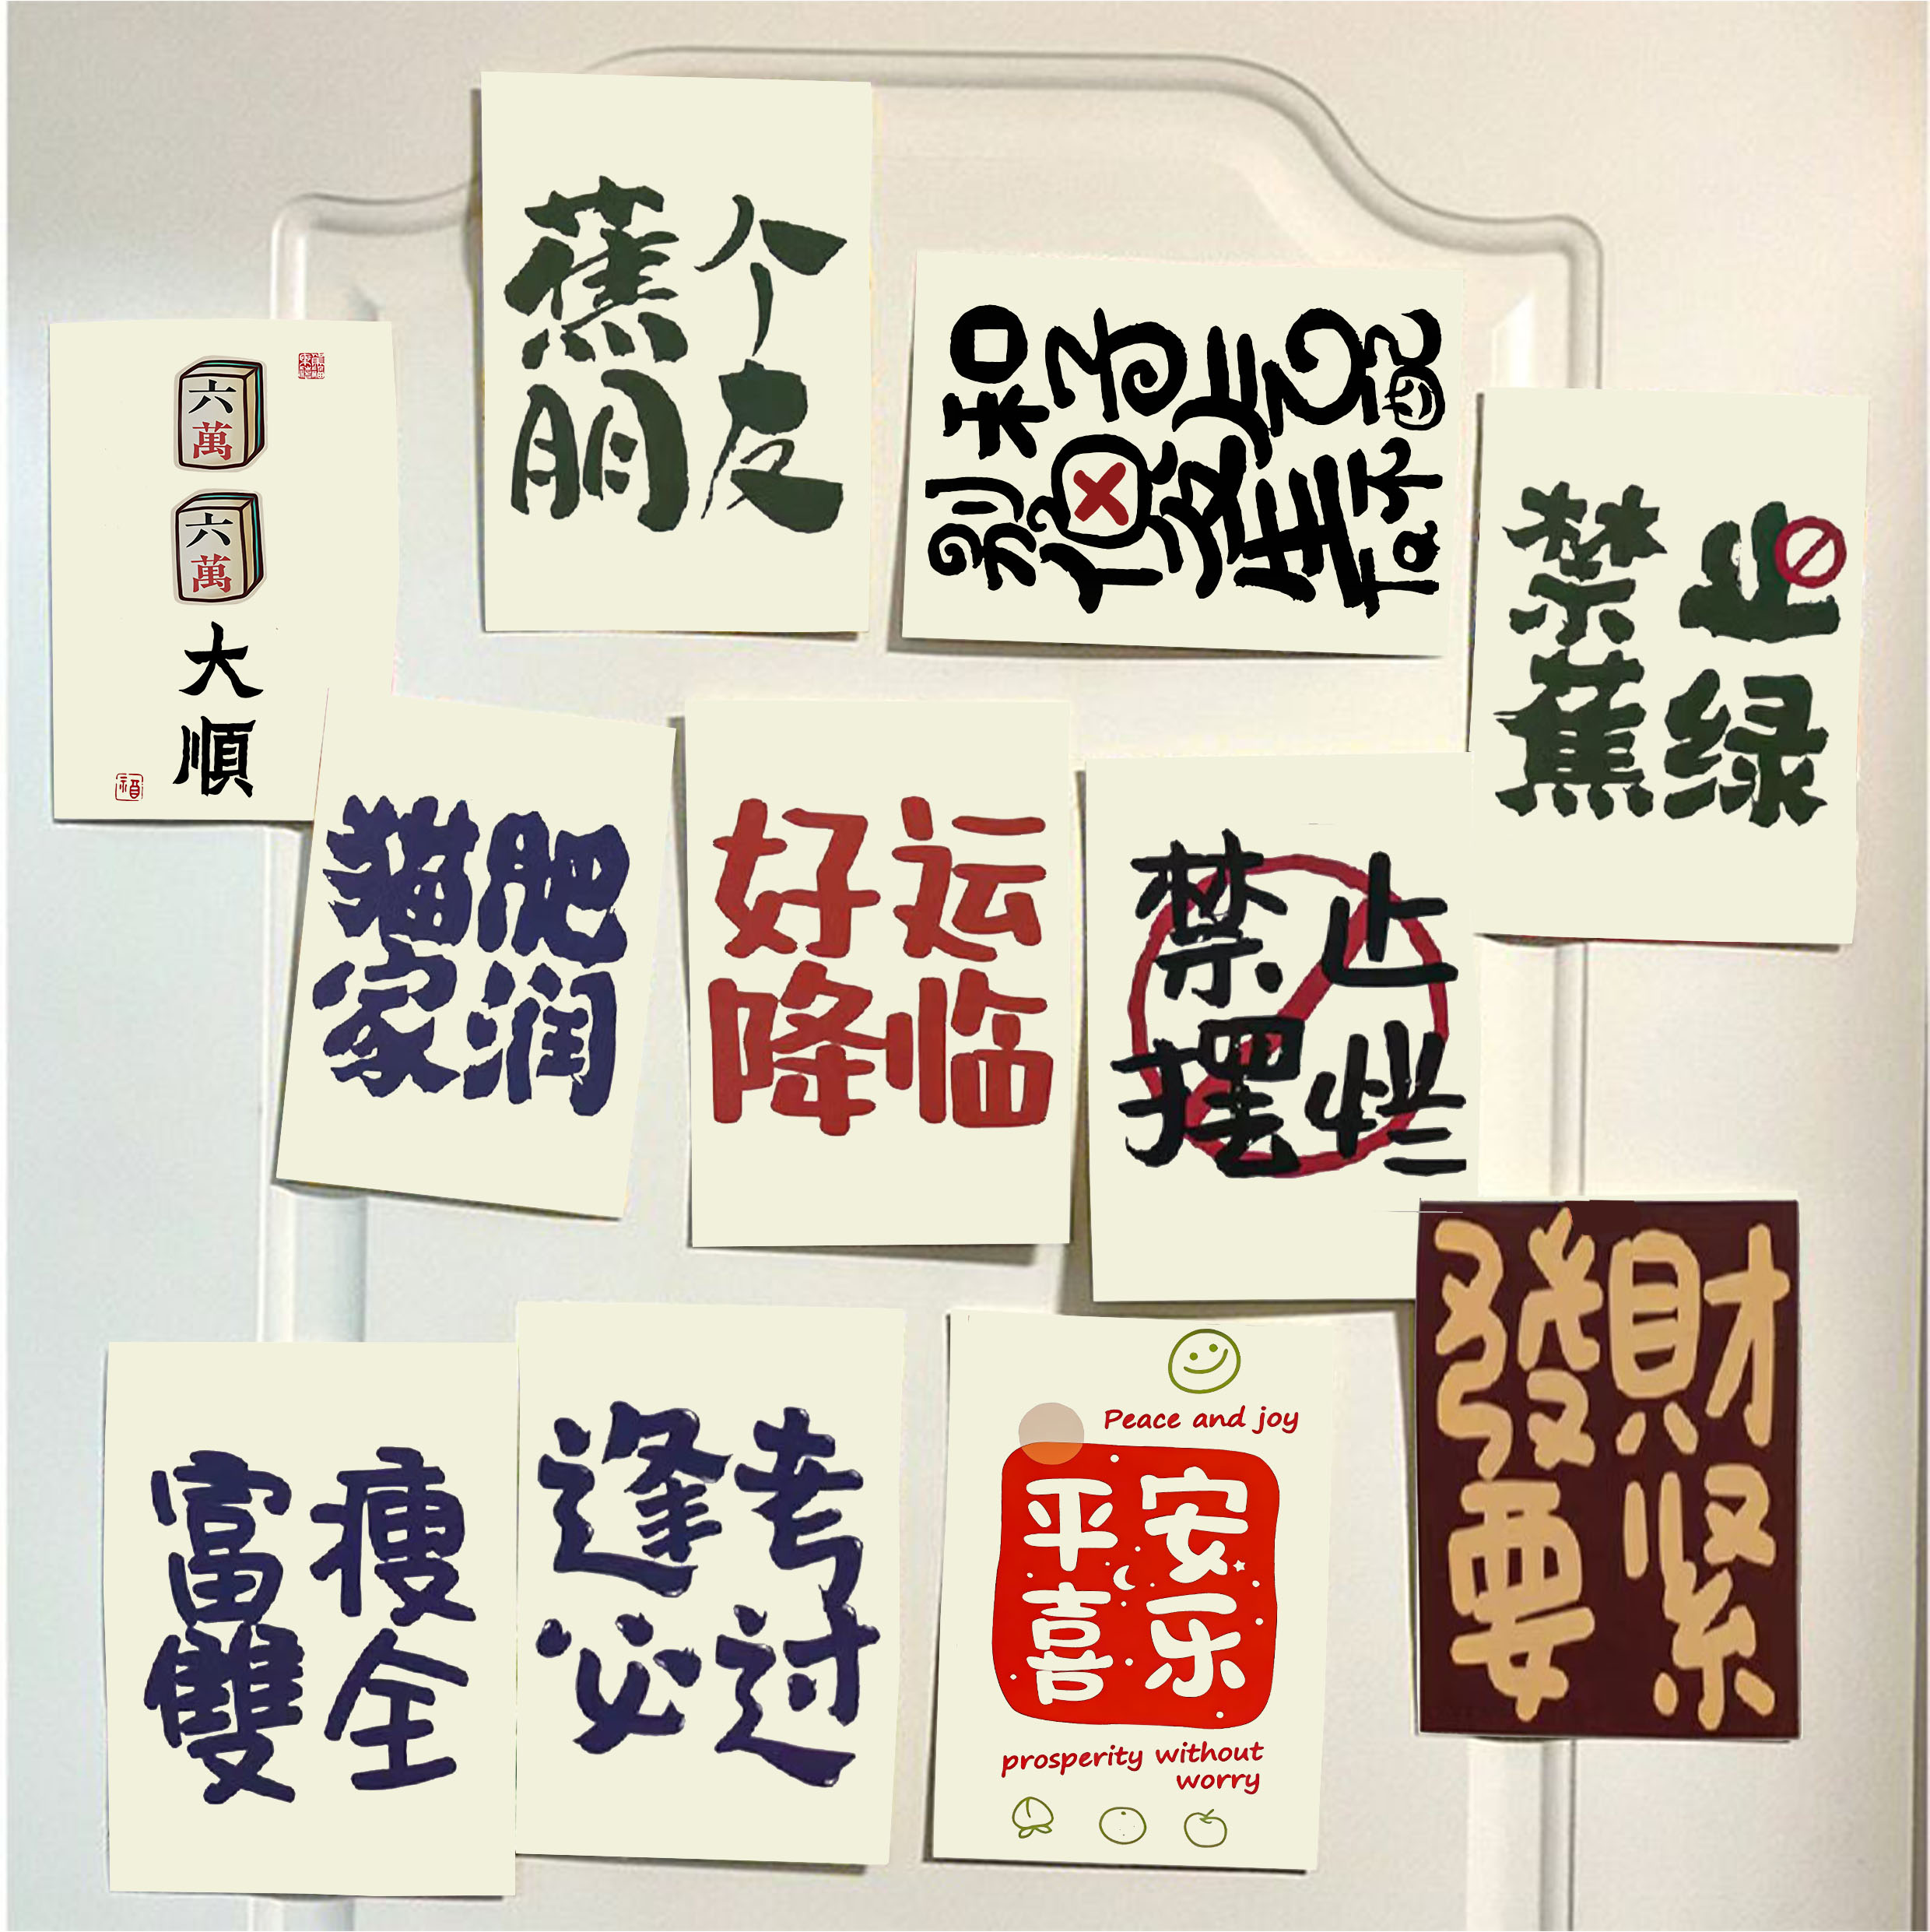 六
萬
六
萬
大
順
蕉个
朋友
禁止
蕉绿
猫肥
家润
好运
降临
禁止
摆烂
發財
要紧
富瘦
雙全
逢考
必过
Peace and joy
平安
喜乐
prosperity without
worry